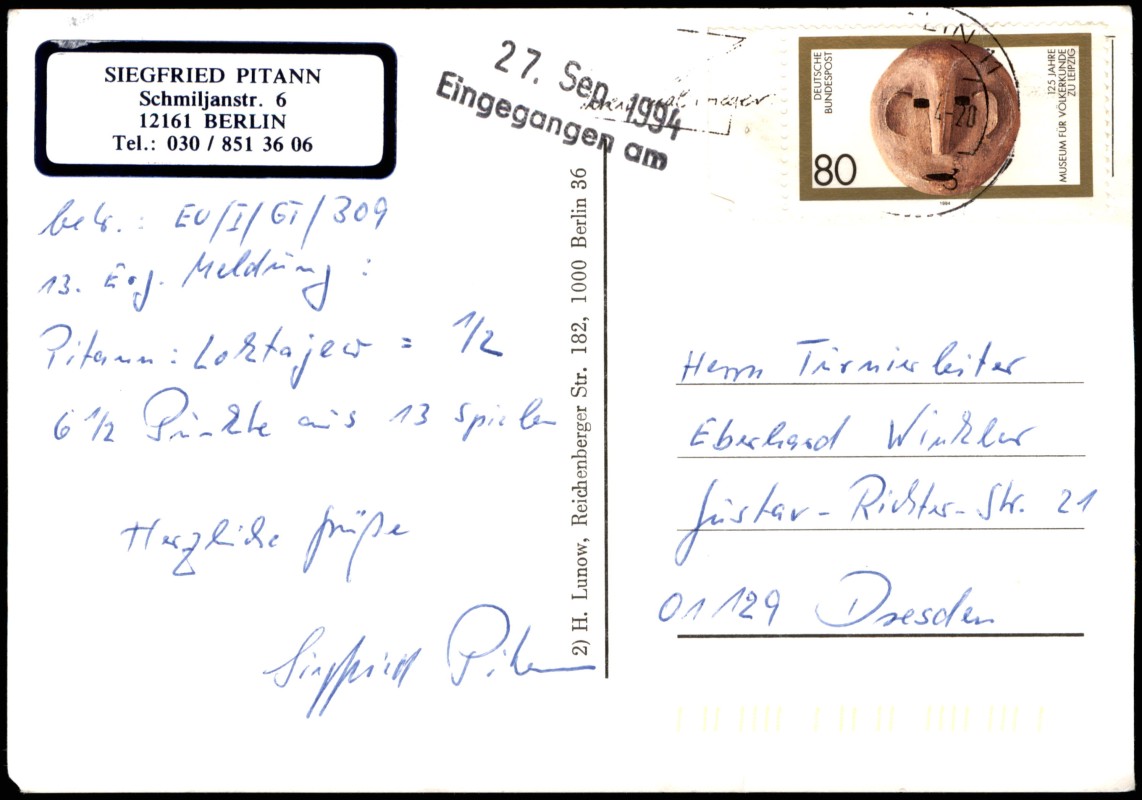 SIEGFRIED PITANN
Schmiljanstr. 6
12161 BERLIN
Tel.: 030 / 851 36 06
betr.: EU/I/GT/309
13. Erg. Meldung:
Pitann : Loktajew = 1/2
6 1/2 Punkte aus 13 Spielen
Herzliche Grüße
Siegfried Pitann
2) H. Lunow, Reichenberger Str. 182, 1000 Berlin 36
27. Sep. 1994
Eingegangen am
DEUTSCHE
BUNDESPOST
80
125 JAHRE
MUSEUM FÜR VÖLKERKUNDE
ZU LEIPZIG
1994
Herrn Turnierleiter
Eberhard Winkler
Gustav-Richter-Str. 21
01129 Dresden